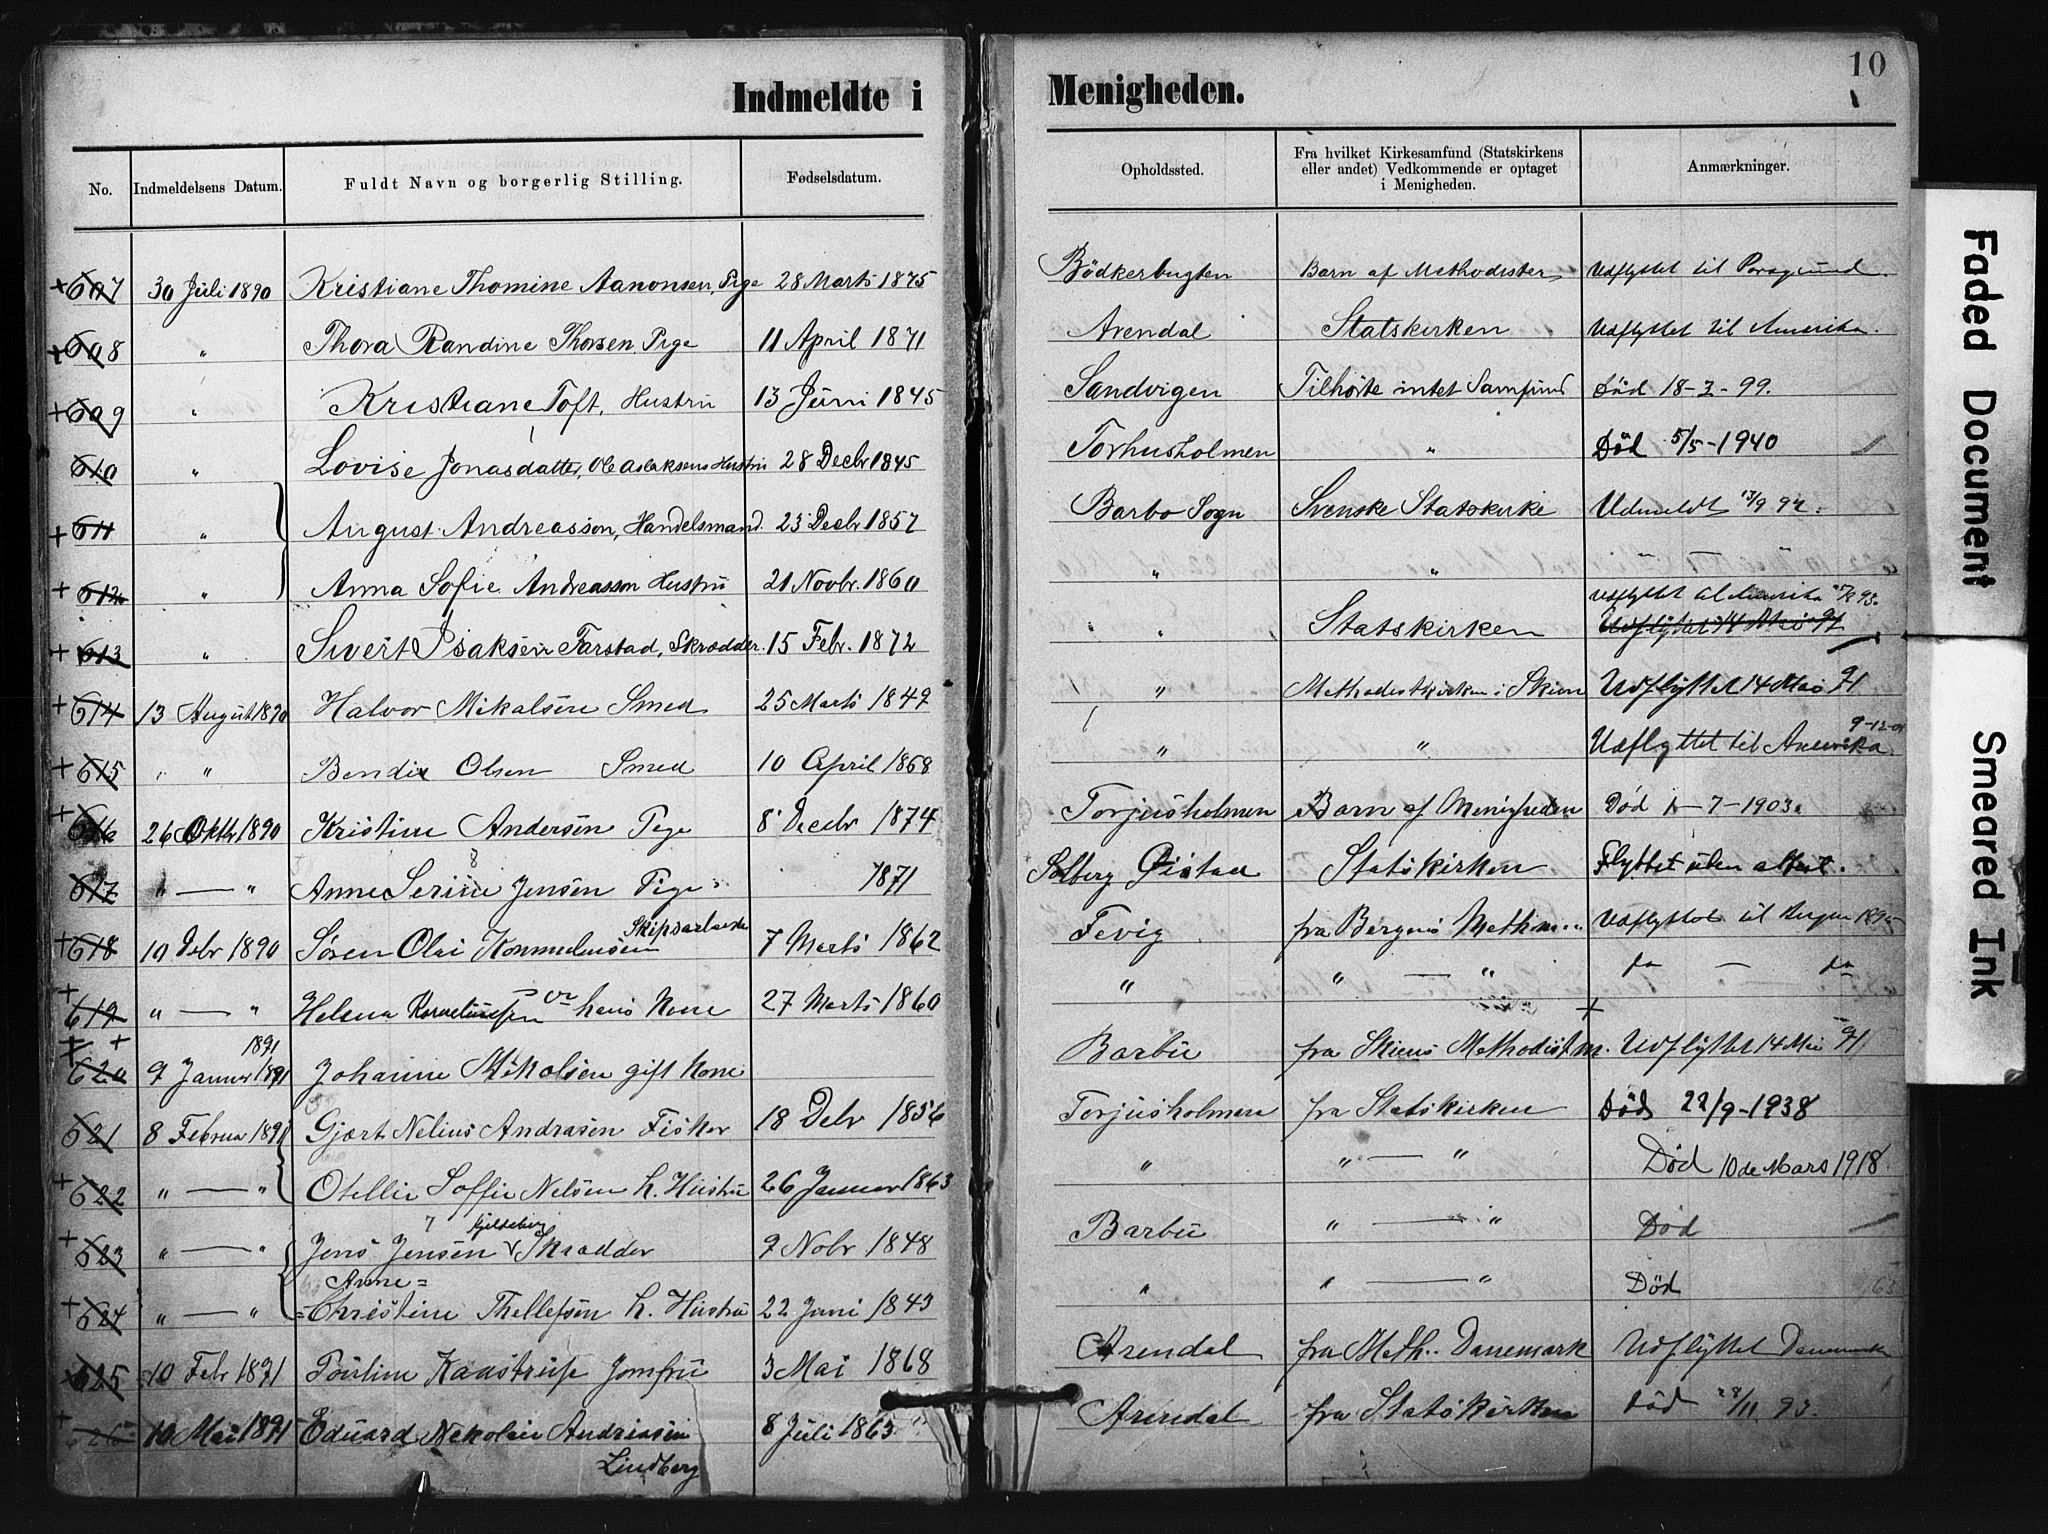 10
Indmeldte i Menigheden.
No. Indmeldelsens Datum. Fuldt Navn og borgerlig Stilling. Fødselsdatum. Opholdssted. Fra hvilket Kirkesamfund (Statskirkens eller andet) Vedkommende er optaget i Menigheden. Anmærkninger.
+ 607 30 Juli 1890 Kristiane Thomine Aanonsen, Pige 28 Marts 1875 Bödkerbugten Barn af Methodister Udflyttet til Porsgrund.
+ 608 " Thora Randine Thorsen Pige 11 April 1871 Arendal Statskirken Udflyttet til Amerika.
+ 609 " Kristiane Toft, Hustru 13 Juni 1845 Sandvigen Tilhörte intet Samfund Död 18-2-99.
610 " Lovise Jonasdatter, Ole Aslaksens Hustru 28 Decbr 1845 Torhusholmen " Död 5/5-1940
+ 611 " August Andreasson, Handelsmand. 23 Decbr 1857 Barbo Sogn Svenske Statskirke Udmeldt 13/9 92.
+ 612 " Anna Sofie Andreasson Hustru 21 Novbr. 1860 " " " "
+ 613 " Sivert Isaksen Farstad, Skrædder. 15 Febr. 1872 " Statskirken Udflyttet til Amerika 93. Udflyttet 14 Mai 91
+ 614 13 August 1890 Halvor Mikalsen Smed 25 Marts 1849 " Methodistkirken i Skien Udflyttet 14 Mai 91
+ 615 " " Bendix Olsen Smed 10 April 1868 " " Udflyttet til Amerika. 9-12-01
+ 616 26 Oktbr 1890 Kristine Andersen Pige 8 Decbr 1874 Torjusholmen Barn af Menigheden Död 1-7-1903.
617 " — " Anne Serine Jensen Pige 1871 Solberg Öistad Statskirken Flyttet uden attest.
+ 618 10 Debr 1890 Sören Olai Kornneliussen Skibsarbeider 7 Marts 1862 Fevig fra Bergens Meth m.. Udflyttet til Bergen 1895
+ 619 " — " Helena Korneliussen hans Kone 27 Marts 1860 " " — " da — da
+ + 620 9 Januar 1891 1891 Johanne Mikalsen gift Kone Barbu fra Skiens Methodist m. Udflyttet 14 Mai 91
621 8 Februar 1891 Gjært Nelius Andrasen Fisker 18 Debr 1856 Torjusholmen fra Statskirken Död 22/9-1938
+ 622 " — " Otellie Soffie Nelsen h. Hustru 26 Januar 1863 " " — " Död 10de Mars 1918.
+ 623 " — " Jens Jensen Gjeldeberg Skrædder 9 Nobr 1848 Barbu " — " Död
+ 624 " — " Anne= =Christine Thellefsen h. Hustru 22 Juni 1843 " " — " Död
+ 625 10 Febr 1891 Pouline Kaastrup Jomfru 3 Mai 1868 Arendal fra Meth.. Danemark Udflyttet Danemark
+ 626 10 Mai 1891 Eduard Nekolai Andriasen Lindberg 8 Juli 1863. Arendal fra Statskirken Död 28/11 93.
Faded Document
Smeared Ink